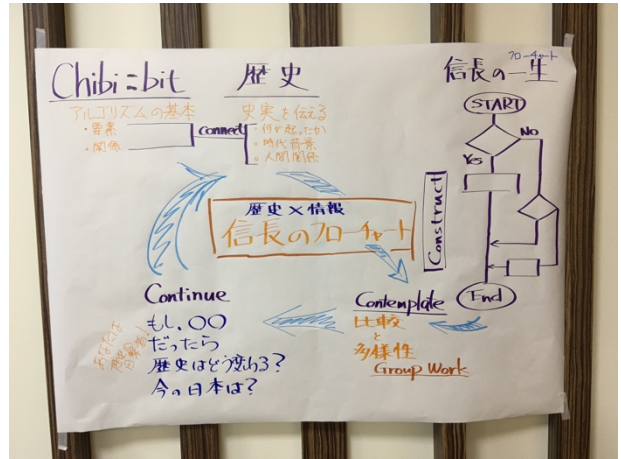 Chibi:bit 歴史
アルゴリズムの基本
・要素
・関係
Connect
史実を伝える
・何が起ったか
・時代背景
・人間関係
フローチャート
信長の一生
START
No
Yes
End
Construct
歴史×情報
信長のフローチャート
Contemplate
比較
と
多様性
Group Work
Continue
もし、〇〇
だったら
歴史はどう変わる?
今の日本は?
あなたは